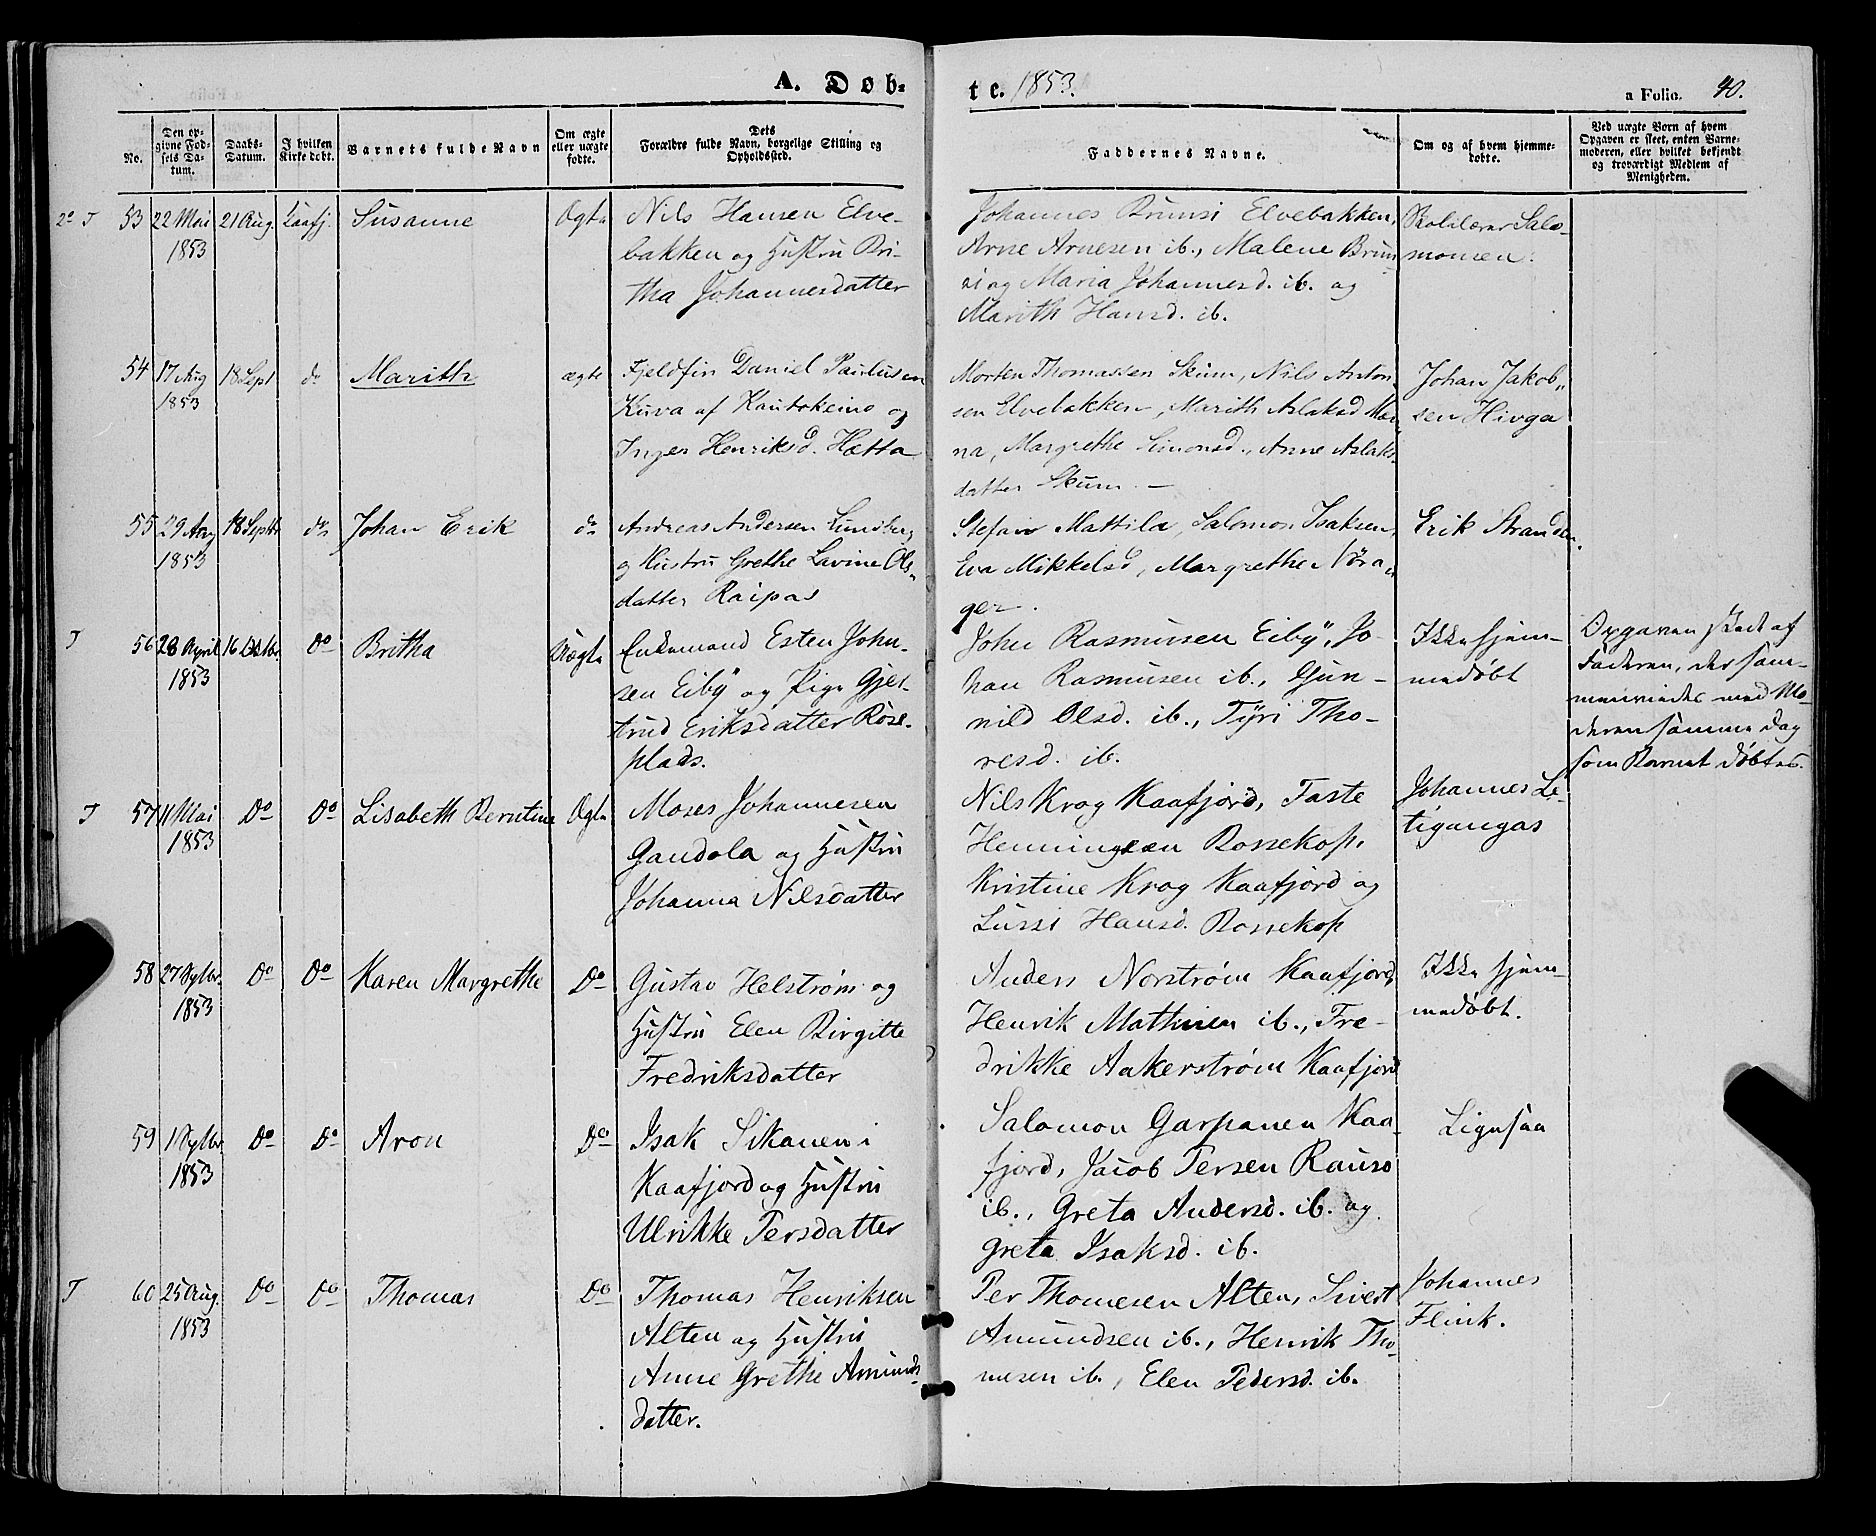 A. Døb-
te. 1853.
a Folio. 40.
No.
Den opgivne Fødsels Datum.
Daabs-Datum.
I hvilken Kirke døbt.
Barnets fulde Navn
Om ægte eller uægte fødte.
Dets Forældre fulde Navn, borgelige Stilling og Opholdssted.
Faddernes Navne.
Om og af hvem hjemmedøbte.
Ved uægte Børn af hvem Opgaven er skeet, enten Barnemoderen, eller hvilket bekjendt og troværdigt Medlem af Menigheden.
53 22 Mai 1853 21 Aug. Kaafj. Susanne Ægte
Nils Hansen Elve-
bakken og Hustru Bri-
tha Johannesdatter
Johannes Brunsi Elvebakken,
Arne Arnesen ib., Malene Brun-
si og Maria Johannesd. ib. og
Marith Hansd. ib.
Skolelærer Salo-
monsen.
54 17 Aug 1853 18 Sept do Marith ægte
Fjeldfin Daniel Paulusen
Kurva af Kautokeino og
Inger Henriksd. Hætta
Morten Thomassen Skum, Nils Anton-
sen Elvebakken, Marith Aslaksd
na, Margrethe Simonsd., Anne Aslaks-
datter Skum. —
Johan Jakob-
sen Hivga
55 29 Aug 1853 18 Septbr do Johan Erik do
Andreas Andersen Lundberg
og Hustru Grethe Lavine Ols-
datter Raipas
Stefan Mattila, Salomon Isaksen,
Eva Mikkelsd, Margrethe Nöra-
ger.
Erik Strand
T 56 28 April 1853 16 Octbr. Do Britha Uægte
Enkemand Esten John-
sen Eiby og Pige Gjer-
trud Eriksdatter Röse-
plads.
John Rasmussen Eiby, Jo-
han Rasmussen ib., Gun-
nild Olsd. ib., Tyri Tho-
resd. ib.
Ikke hjem-
medøbt
Opgaven skedt af
Faderen, der sam-
menviedes med Mo-
deren samme Dag
som Barnet døbtes.
T 57 11 Mai 1853 Do Do Lisabeth Berntine Ægte
Moses Johannesen
Gandola og Hustru
Johanna Nilsdatter
Nils Krog Kaafjord, Faste
Henningsen Bossekop,
Kristine Krog Kaafjord og
Lussi Hansd. Bossekop
Johannes Le-
tigangas
58 27 Sptbr. 1853 Do Do Karen Margrethe Do
Gustav Helstrøm og
Hustru Elen Birgitte
Fredriksdatter
Anders Norstrøm Kaafjord,
Henrik Mathisen ib., Fre-
drikke Aakerstrøm Kaafjord
Ikke hjem-
medøbt.
59 1 Sptbr 1853 Do Do Aron Do
Isak Sikanen i
Kaafjord og Hustru
Ulrikke Persdatter
Salomon Garpanen Kaa-
fjord, Jacob Persen Rauso
ib., Greta Andersd. ib. og
Greta Isaksd. ib.
Ligesaa
T 60 25 Aug. 1853 Do Do Thomas Do
Thomas Henriksen
Alten og Hustru
Anne Grethe Amunds-
datter.
Per Thomesen Alten, Sivert
Amundsen ib., Henrik Tho-
mesen ib., Elen Pedersd. ib.
Johannes
Flink.